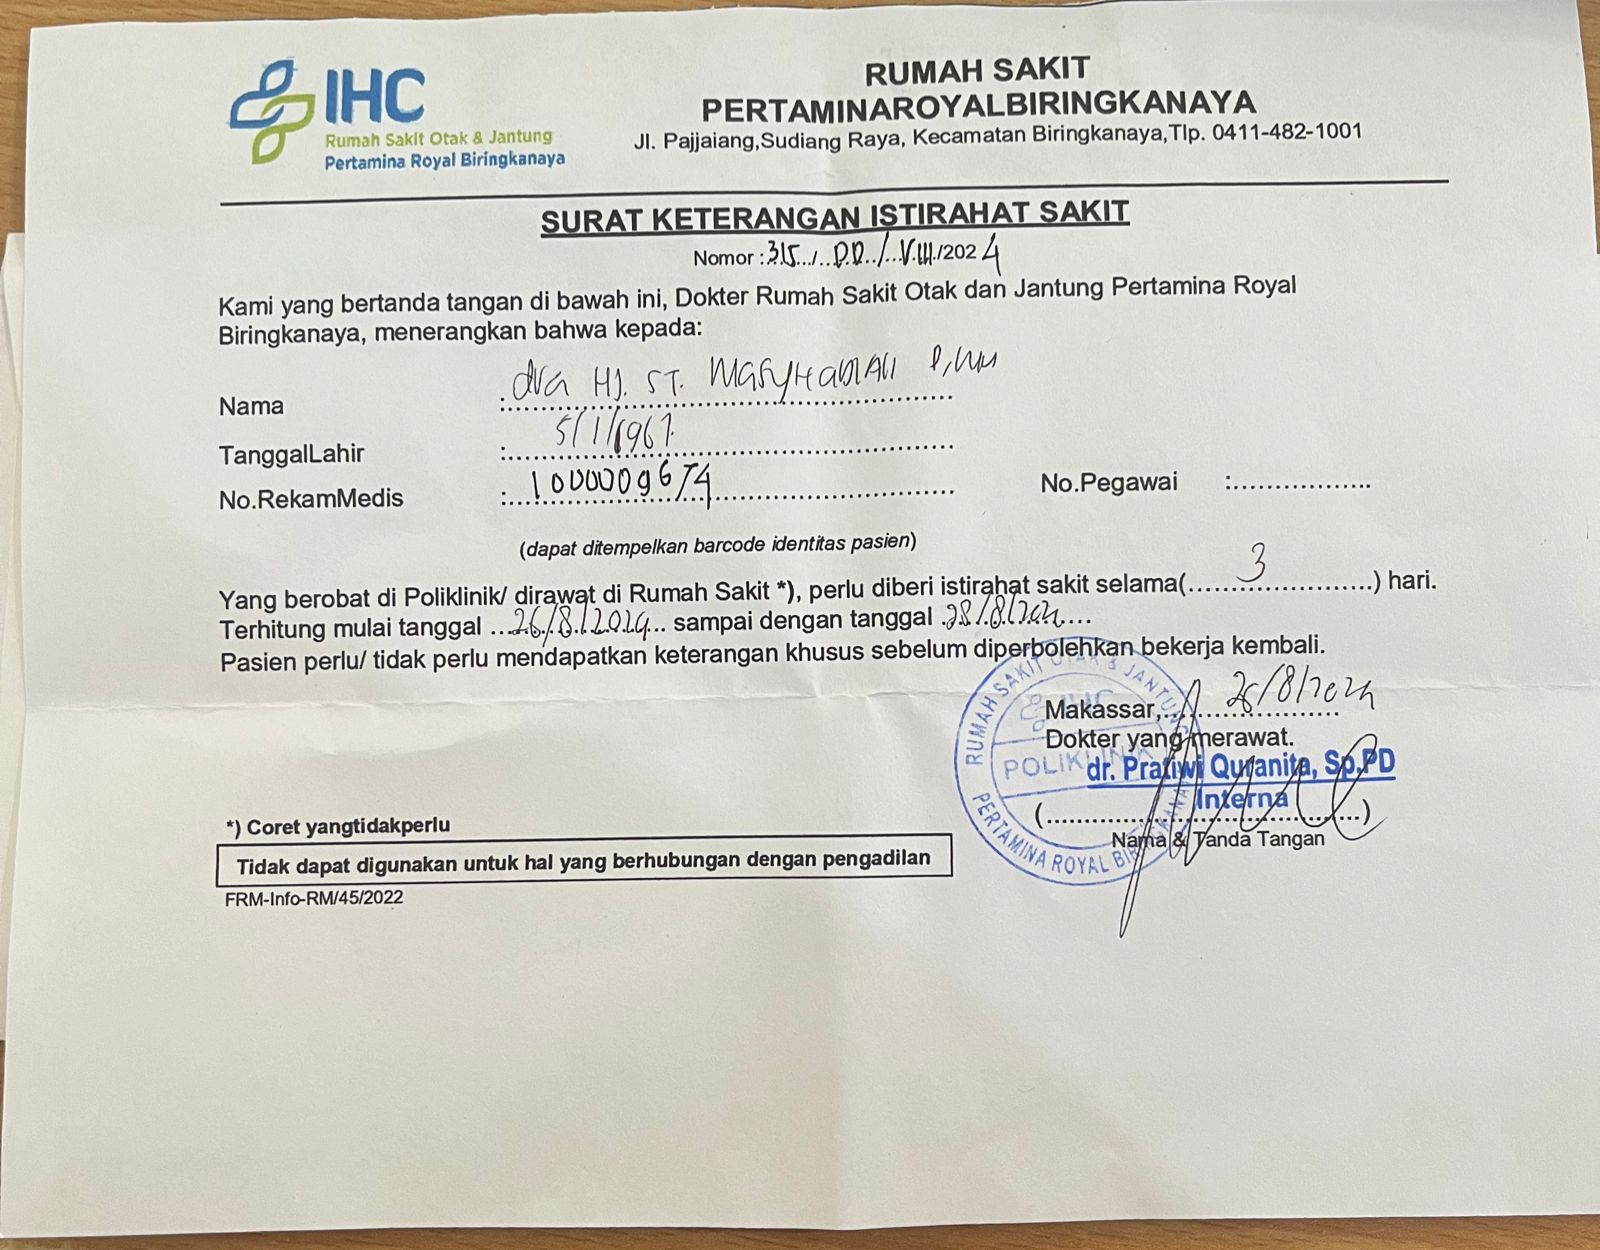 IHC
Rumah Sakit Otak & Jantung
Pertamina Royal Biringkanaya
RUMAH SAKIT
PERTAMINAROYALBIRINGKANAYA
Jl. Pajjaiang,Sudiang Raya, Kecamatan Biringkanaya,Tlp. 0411-482-1001
SURAT KETERANGAN ISTIRAHAT SAKIT
Nomor : 315 / P.D. / VIII /2024
Kami yang bertanda tangan di bawah ini, Dokter Rumah Sakit Otak dan Jantung Pertamina Royal
Biringkanaya, menerangkan bahwa kepada:
Nama : dra HJ. ST.
TanggalLahir : 5/1/1967
No.RekamMedis : No.Pegawai :
(dapat ditempelkan barcode identitas pasien)
Yang berobat di Poliklinik/ dirawat di Rumah Sakit *), perlu diberi istirahat sakit selama( 3 ) hari.
Terhitung mulai tanggal 26/8/2024 sampai dengan tanggal 28/8/2024
Pasien perlu/ tidak perlu mendapatkan keterangan khusus sebelum diperbolehkan bekerja kembali.
Makassar, 26/8/2024
Dokter yang merawat.
dr. Pratiwi Quranita, Sp.PD
Interna
( )
Nama & Tanda Tangan
RUMAH SAKIT OTAK & JANTUNG
IHC
POLIKLINIK
PERTAMINA ROYAL BIRINGKANAYA
*) Coret yangtidakperlu
Tidak dapat digunakan untuk hal yang berhubungan dengan pengadilan
FRM-Info-RM/45/2022